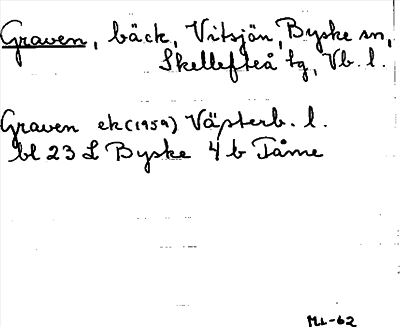 Graven, bäck, Vitsjön, Byske sn,
Skellefteå tg, Vb. l.
Graven ek (1959) Västerb. l.
bl 23 L Byske 4 b Tåme
ML-62